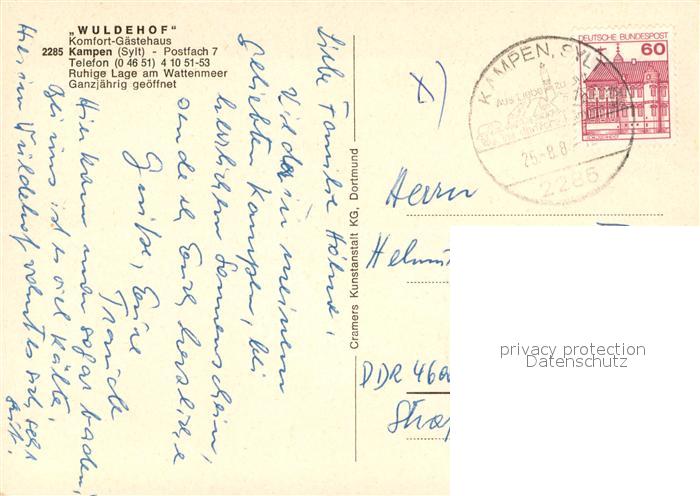 „WULDEHOF"
Komfort-Gästehaus
2285 Kampen (Sylt) - Postfach 7
Telefon (0 46 51) 4 10 51-53
Ruhige Lage am Wattenmeer
Ganzjährig geöffnet
Liebe Familie Höhne,
Wieder in meinem
geliebten Kampen, bei
herrlichem Sonnenschein,
sende ich Euch herzliche
Grüße, Eure
Traute
Hier kann man sogar baden,
bei uns ist es viel kälter.
Hier im Wuldehof wohnt es sich sehr
gut.
Cramers Kunstanstalt KG, Dortmund
DEUTSCHE BUNDESPOST
60
KAMPEN, SYLT
25.-8.8
2285
Herrn
Helmut
DDR 460
privacy protection
Datenschutz